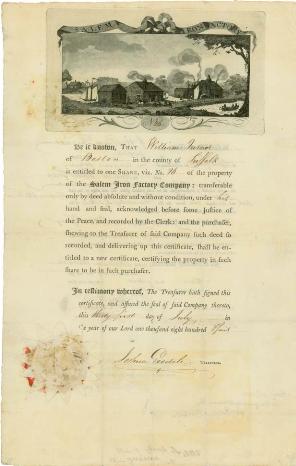 SALEM IRON FACTORY
Be it known, THAT William Turner
of Boston in the county of Suffolk
is entitled to one SHARE, viz. No. 76 of the property
of the Salem Iron Factory Company: transferable
only by deed absolute and without condition, under his
hand and seal, acknowledged before some Justice of
the Peace, and recorded by the Clerk: and the purchaser,
shewing to the Treasurer of said Company such deed so
recorded, and delivering up this certificate, shall be en-
titled to a new certificate, certifying the property in such
share to be in such purchaser.
In testimony whereof, The Treasurer hath signed this
certificate, and affixed the seal of said Company thereto,
this thirty first day of July, in
the year of our Lord one thousand eight hundred
Joshua TREASURER.